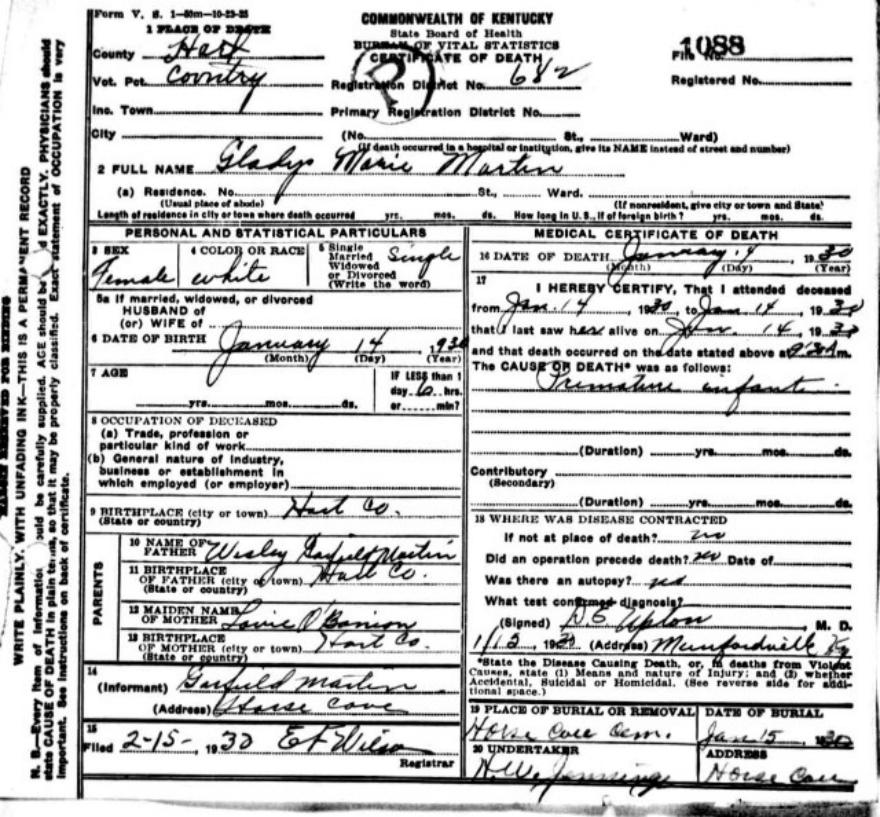 Form V. S. 1-50m-10-23-25
COMMONWEALTH OF KENTUCKY
State Board of Health
BUREAU OF VITAL STATISTICS
CERTIFICATE OF DEATH
1 PLACE OF DEATH
County Hart
File No. 1088
Vot. Pct. Country
Registration District No. 682
Registered No.
Inc. Town
Primary Registration District No.
City (No. St., Ward)
(If death occurred in a hospital or institution, give its NAME instead of street and number)
2 FULL NAME Gladys Marie Martin
(a) Residence. No. St., Ward.
(Usual place of abode) (If nonresident, give city or town and State)
Length of residence in city or town where death occurred yrs. mos. ds. How long in U. S., if of foreign birth? yrs. mos. ds.
PERSONAL AND STATISTICAL PARTICULARS
3 SEX Female
4 COLOR OR RACE white
5 Single Married Widowed or Divorced (Write the word) Single
5a If married, widowed, or divorced
HUSBAND of
(or) WIFE of
6 DATE OF BIRTH January 14, 1930
(Month) (Day) (Year)
7 AGE
yrs. mos. ds.
IF LESS than 1
day 6 hrs.
or min?
8 OCCUPATION OF DECEASED
(a) Trade, profession or
particular kind of work
(b) General nature of industry,
business or establishment in
which employed (or employer)
9 BIRTHPLACE (city or town) Hart Co.
(State or country)
PARENTS
10 NAME OF FATHER Wesley Garfield Martin
11 BIRTHPLACE OF FATHER (city or town) Hart Co.
(State or country)
12 MAIDEN NAME OF MOTHER Lovie O'Banion
13 BIRTHPLACE OF MOTHER (city or town) Hart Co.
(State or country)
14
(Informant) Garfield Martin
(Address) Horse Cave
15
Filed 2-15-, 1930 E F Wilson
Registrar
MEDICAL CERTIFICATE OF DEATH
16 DATE OF DEATH January 14 1930
(Month) (Day) (Year)
17
I HEREBY CERTIFY, That I attended deceased
from Jan. 14, 1930, to Jan 14, 1930
that I last saw her alive on Jan. 14, 1930
and that death occurred on the date stated above at 9:30 A m.
The CAUSE OF DEATH* was as follows:
Premature infant
(Duration) yrs. mos. ds.
Contributory
(Secondary)
(Duration) yrs. mos. ds.
18 WHERE WAS DISEASE CONTRACTED
If not at place of death? no
Did an operation precede death? no Date of
Was there an autopsy? no
What test confirmed diagnosis?
(Signed) Upton, M. D.
1/15, 1930 (Address) Munfordville Ky
*State the Disease Causing Death, or, in deaths from Violent
Causes, state (1) Means and nature of Injury; and (2) whether
Accidental, Suicidal or Homicidal. (See reverse side for addi-
tional space.)
19 PLACE OF BURIAL OR REMOVAL Horse Cave Cem.
DATE OF BURIAL Jan 15, 1930
20 UNDERTAKER H. W. Jennings
ADDRESS Horse Cave
MARGIN RESERVED FOR BINDING
WRITE PLAINLY, WITH UNFADING INK—THIS IS A PERMANENT RECORD
N. B.—Every item of information should be carefully supplied. AGE should be stated EXACTLY. PHYSICIANS should
state CAUSE OF DEATH in plain terms, so that it may be properly classified. Exact statement of OCCUPATION is very
important. See instructions on back of certificate.